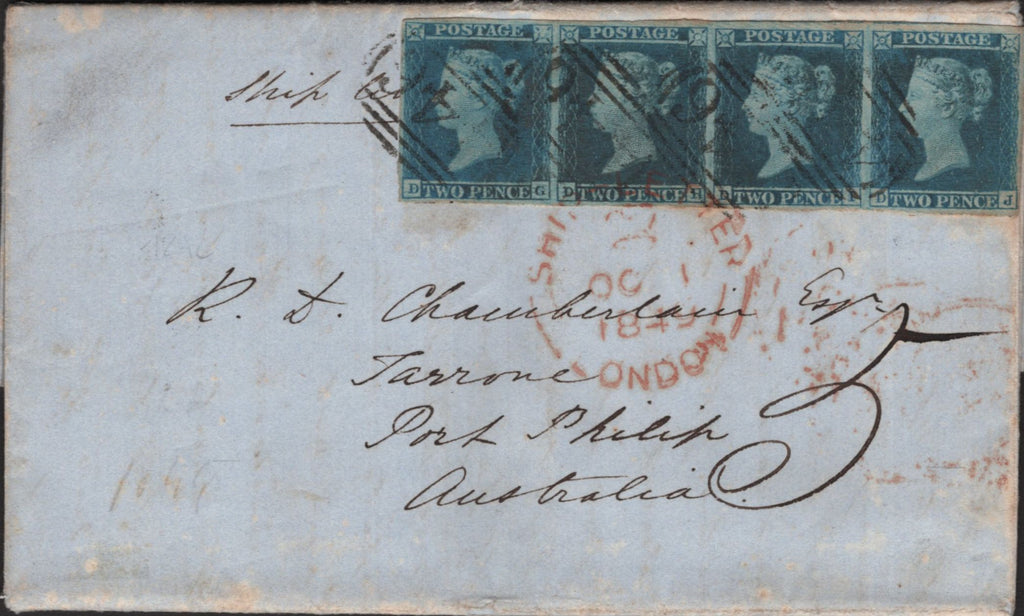 POSTAGE POSTAGE POSTAGE POSTAGE
Ship
D TWO PENCE G D TWO PENCE H D TWO PENCE D TWO PENCE J
SHIP LETTER
OC 1
LONDON
R. D. Chamberlain Esqr
Tarrone
Port Philip
Australia